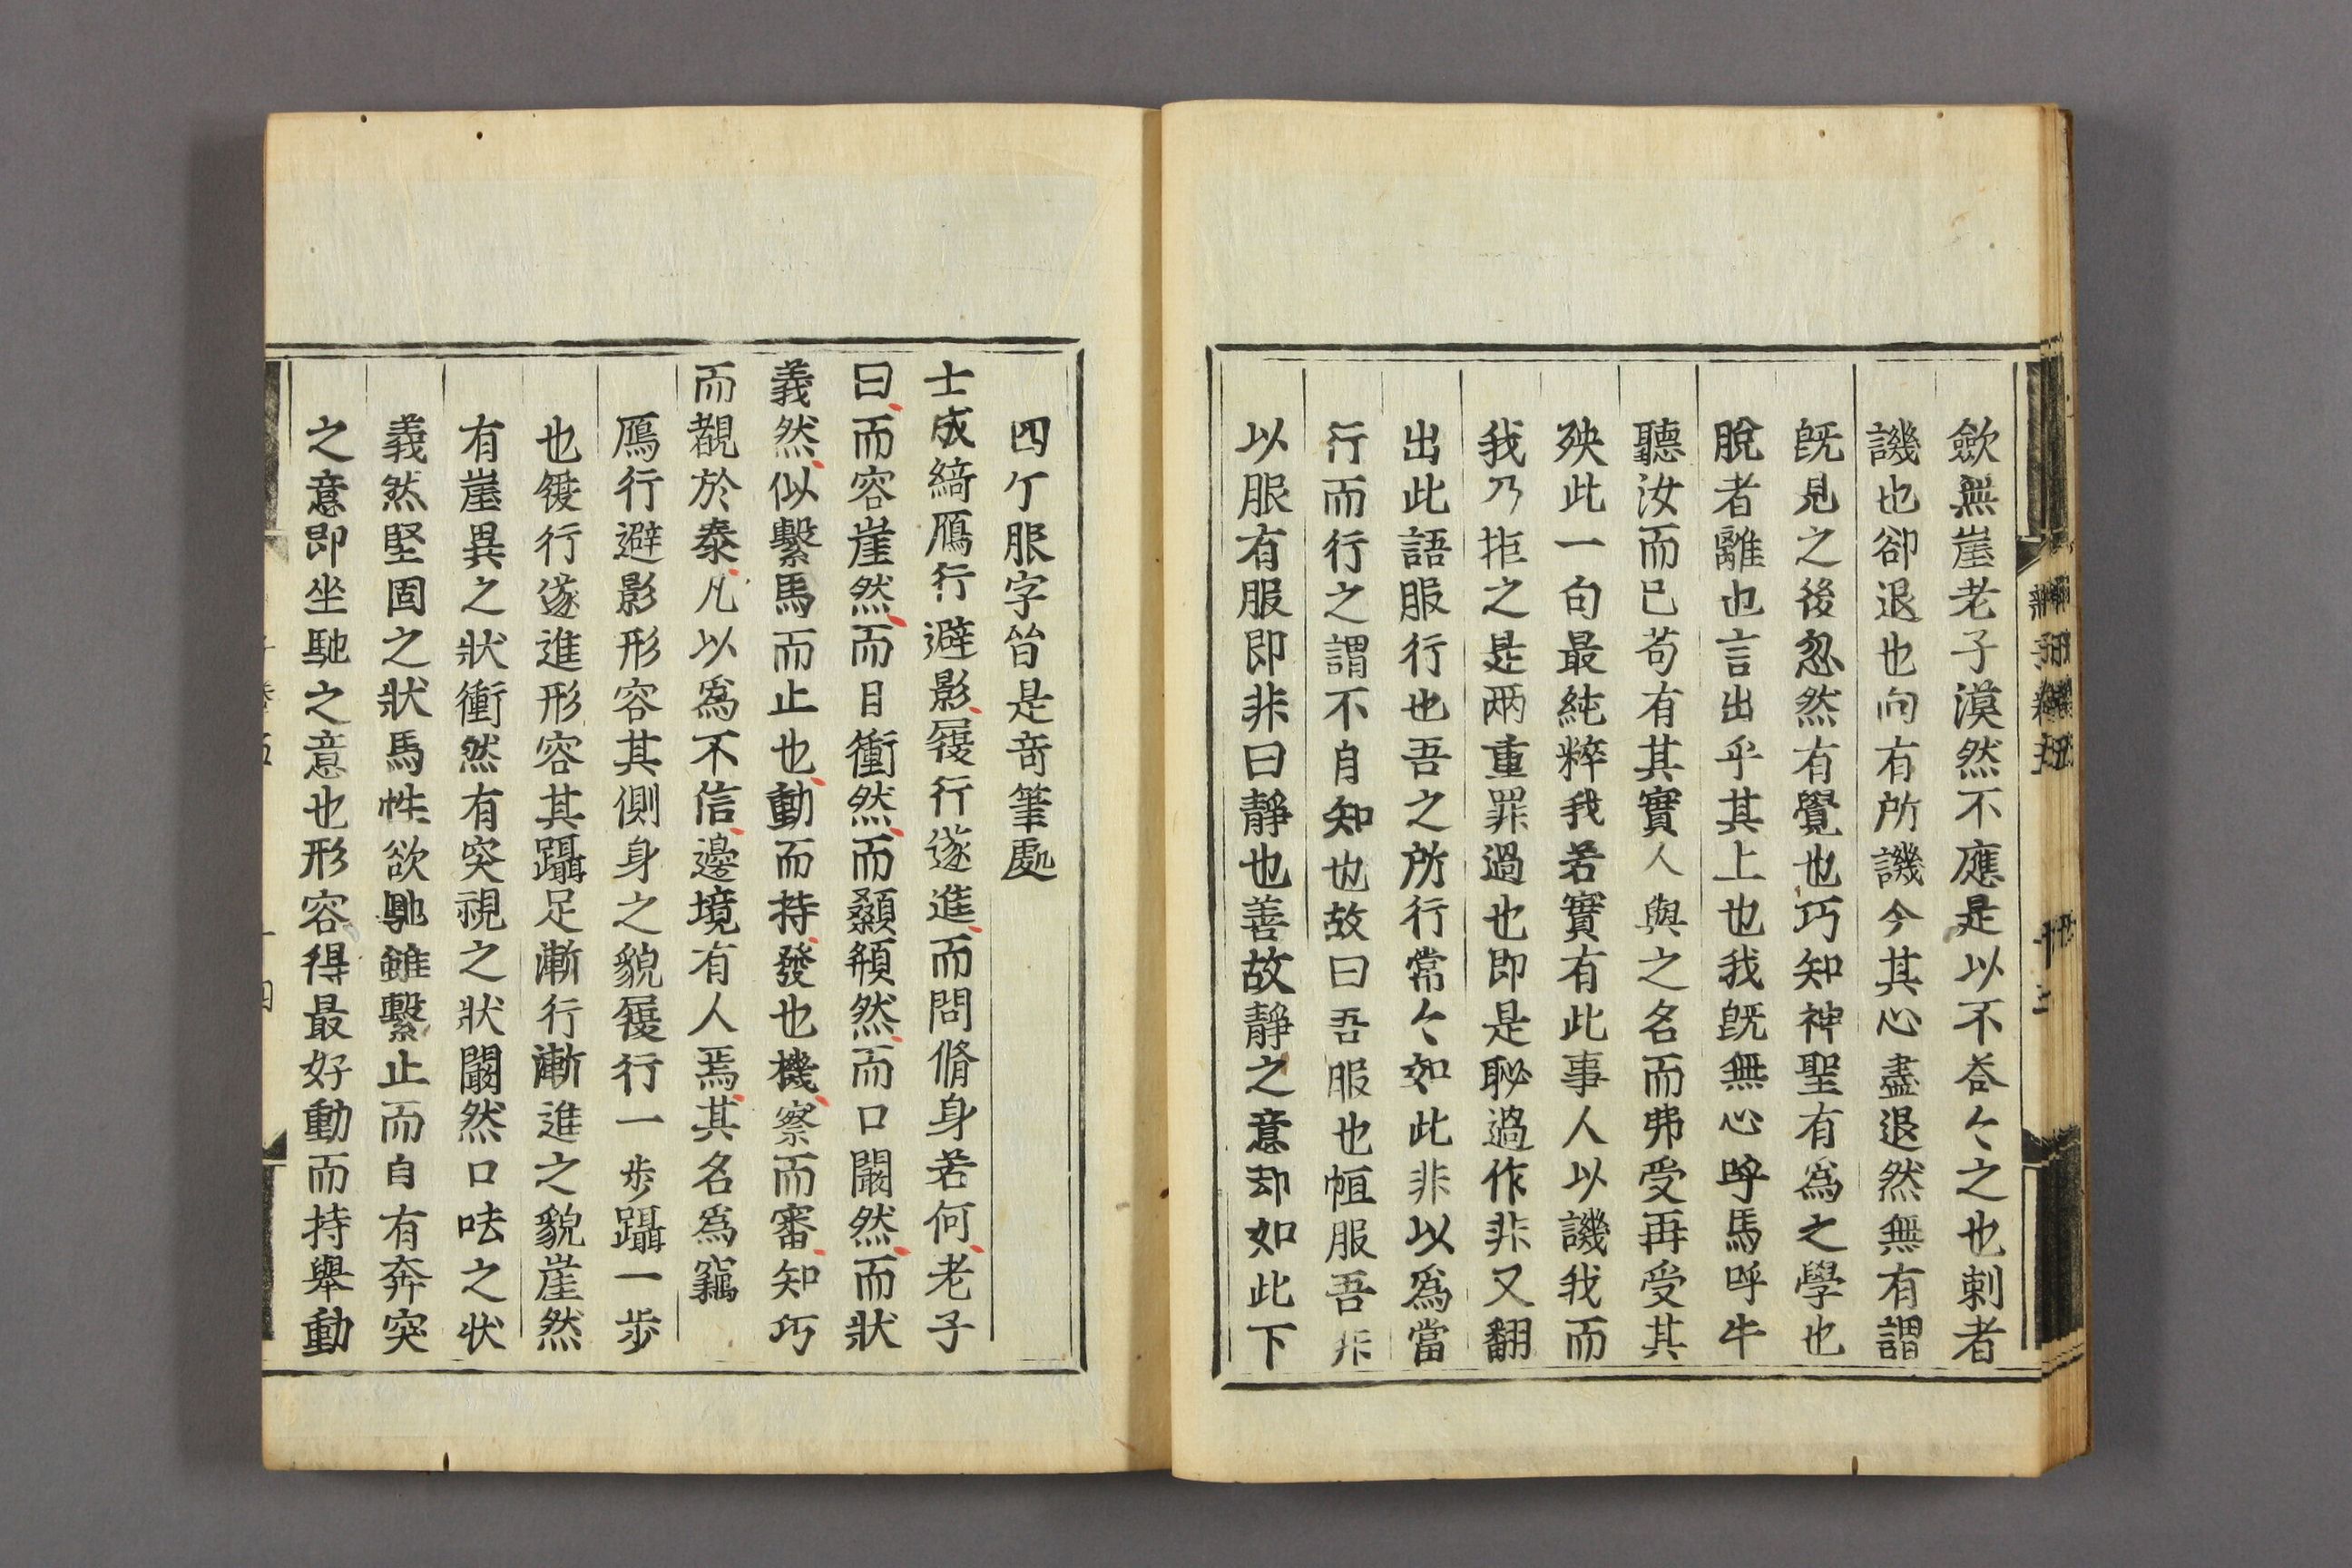 歛無崖老子漠然不應是以不荅〻之也刺者
譏也卻退也向有所譏今其心盡退然無有謂
旣見之後忽然有覺也巧知神聖有爲之學也
脫者離也言出乎其上也我旣無心呼馬呼牛
聽汝而已苟有其實人與之名而弗受再受其
殃此一句最純粹我若實有此事人以譏我而
我乃拒之是兩重罪過也即是耻過作非又翻
出此語服行也吾之所行常〻如此非以爲當
行而行之謂不自知也故曰吾服也恒服吾非
以服有服即非曰靜也善故靜之意却如此下
四个服字皆是竒筆處
士成綺鴈行避影履行遂進而問脩身若何老子
曰而容崖然而目衝然而顙頯然而口闞然而狀
義然似繫馬而止也動而持發也機察而審知巧
而覩於泰凡以爲不信邊境有人焉其名爲竊
鴈行避影形容其側身之貌履行一步躡一步
也履行遂進形容其躡足漸行漸進之貌崖然
有崖異之狀衝然有突視之狀闞然口呿之狀
義然堅固之狀馬性欲馳雖繫止而自有奔突
之意即坐馳之意也形容得最好動而持舉動